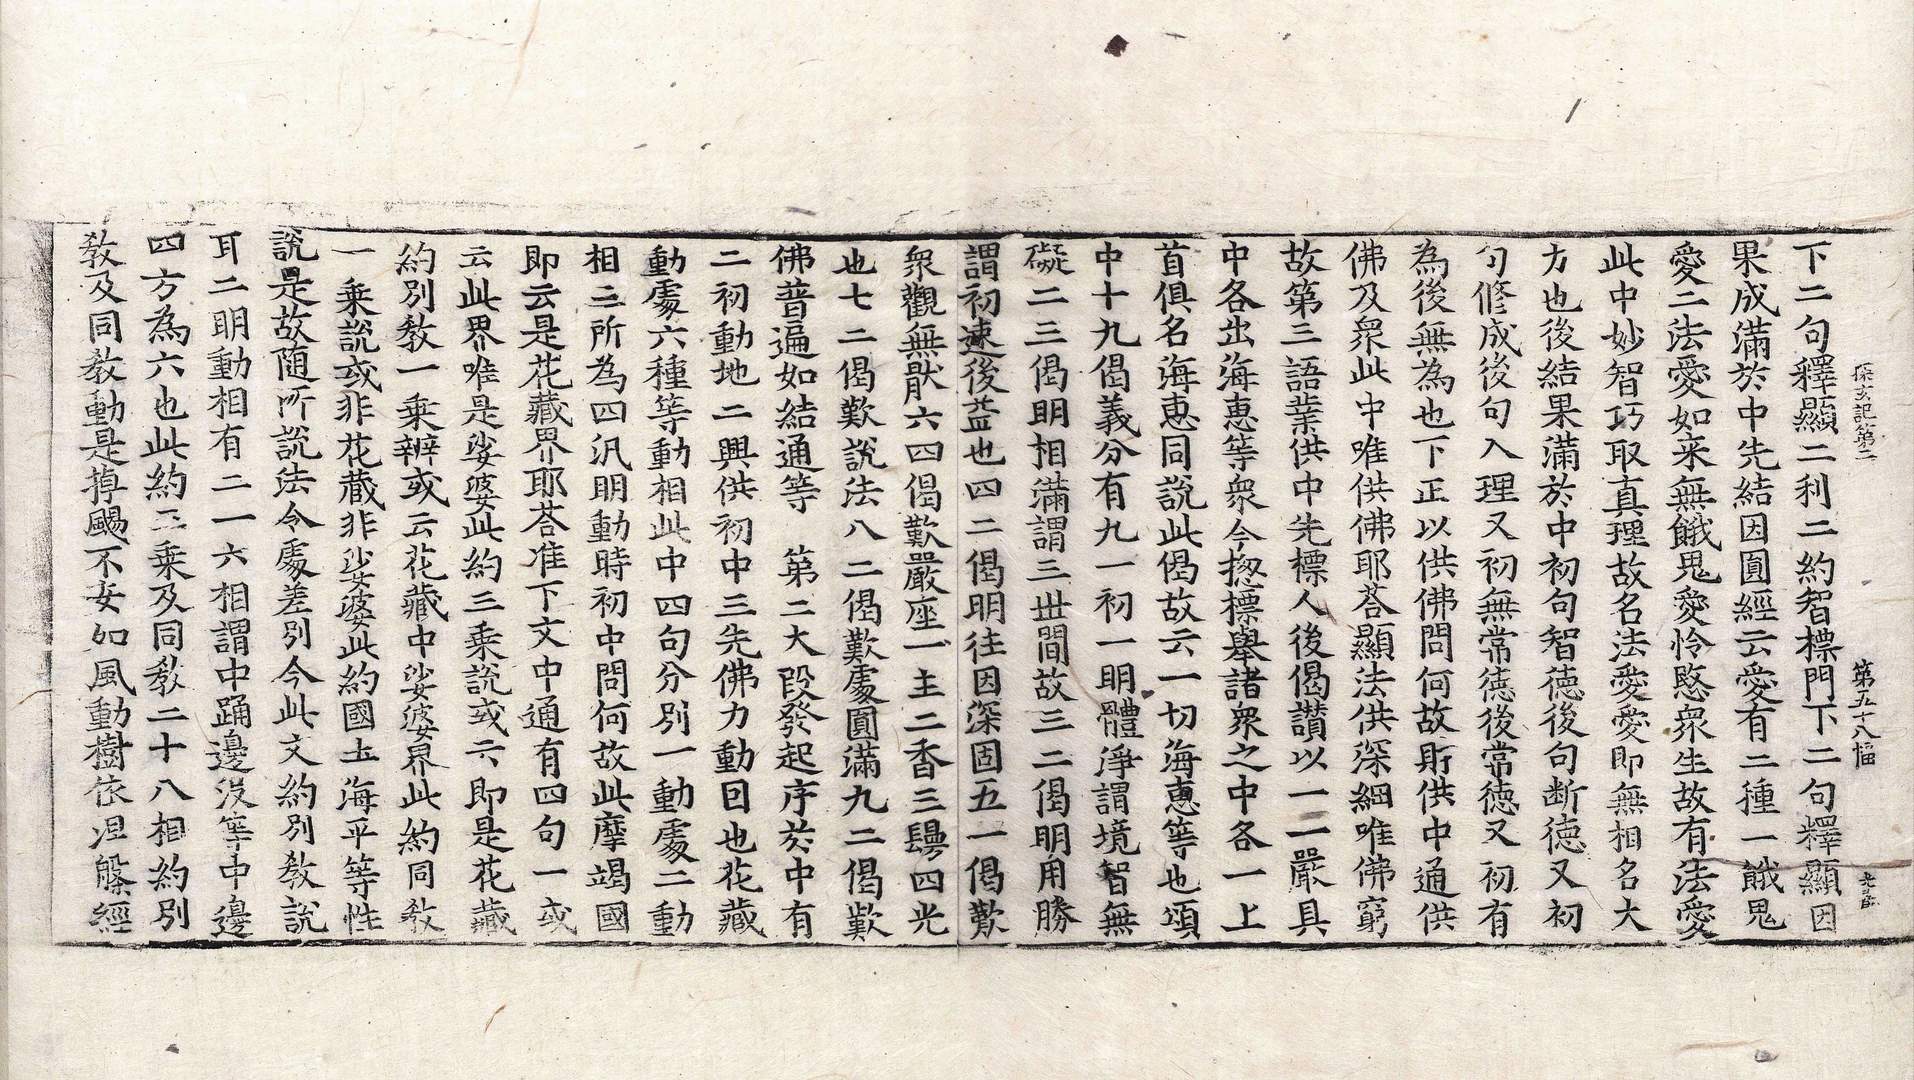 探玄記第二　第五十八幅
下二句釋顯二利二約智標門下二句釋顯因
果成滿於中先結因圓經云愛有二種一餓鬼
愛二法愛如来無餓鬼愛怜愍衆生故有法愛
此中妙智巧取真理故名法愛愛即無相名大
方也後結果滿於中初句智德後句断德又初
句修成後句入理又初無常德後常德又初有
為後無為也下正以供佛問何故所供中通供
佛及衆此中唯供佛耶荅顯法供深細唯佛窮
故第三語業供中先標人後偈讃以一一嚴具
中各出海惠等衆今揔標舉諸衆之中各一上
首俱名海惠同說此偈故云一切海惠等也頌
中十九偈義分有九一初一明體淨謂境智無
礙二三偈明相滿謂三世間故三二偈明用勝
謂初速後益也四二偈明往因深固五一偈歎
衆觀無猒六四偈歎嚴座一主二香三鬘四光
也七二偈歎說法八二偈歎處圓滿九二偈歎
佛普遍如結通等　第二大段發起序於中有
二初動地二興供初中三先佛力動因也花藏
動處六種等動相此中四句分別一動處二動
相三所為四汎明動時初中問何故此摩竭國
即云是花藏界耶荅准下文中通有四句一或
云此界唯是娑婆此約三乘說或云即是花藏
約別教一乘辨或云花藏中娑婆界此約同教
一乘說或非花藏非娑婆此約國土海平等性
說是故随所說法令處差別今此文約別教說
耳二明動相有二一六相謂中踊邊沒等中邊
四方為六也此約三乘及同教二十八相約別
教及同教動是掉颺不安如風動樹依涅槃經